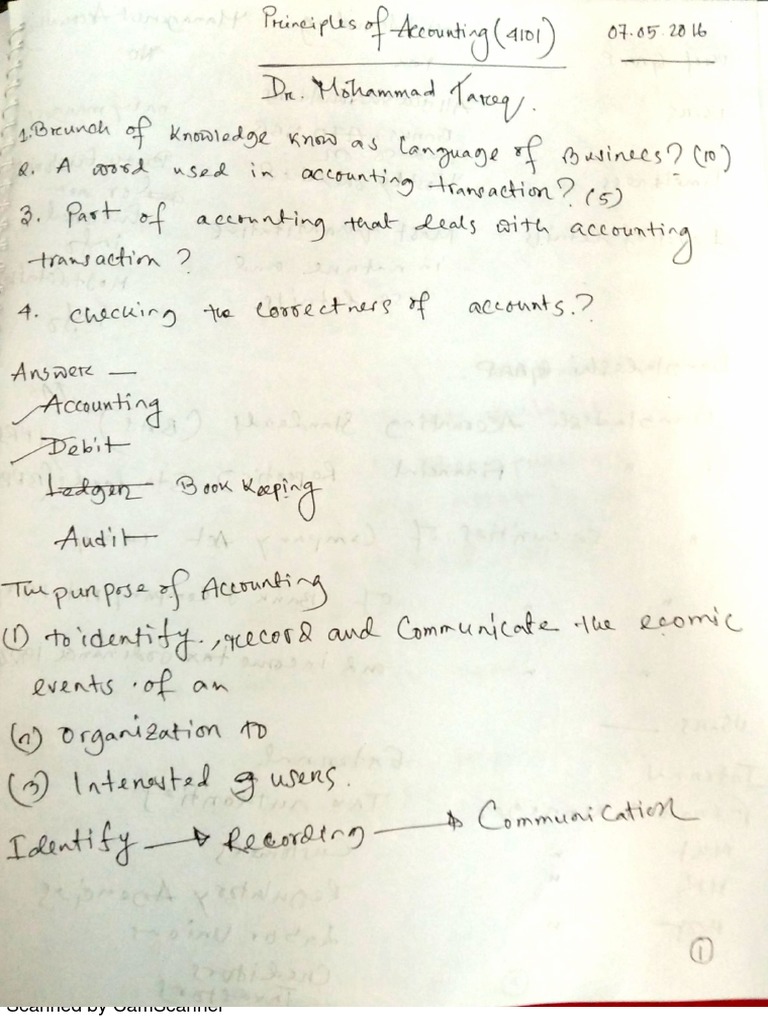 Principles of Accounting (4101) 07.05.2016
Dr. Mohammad Tareq.
1. Breunch of knowledge know as language of Businees? (10)
2. A word used in accounting transaction? (5)
3. Part of accounting that deals with accounting
transaction?
4. checking the correctners of accounts.?
Answer —
Accounting
Debit
Ledger Book Keeping
Audit
The purpose of Accounting
(1) to identify, record and Communicate the ecomic
events of an
(2) organization to
(3) Interested g users.
Identify → Recording → Communication
1
Scanned by CamScanner